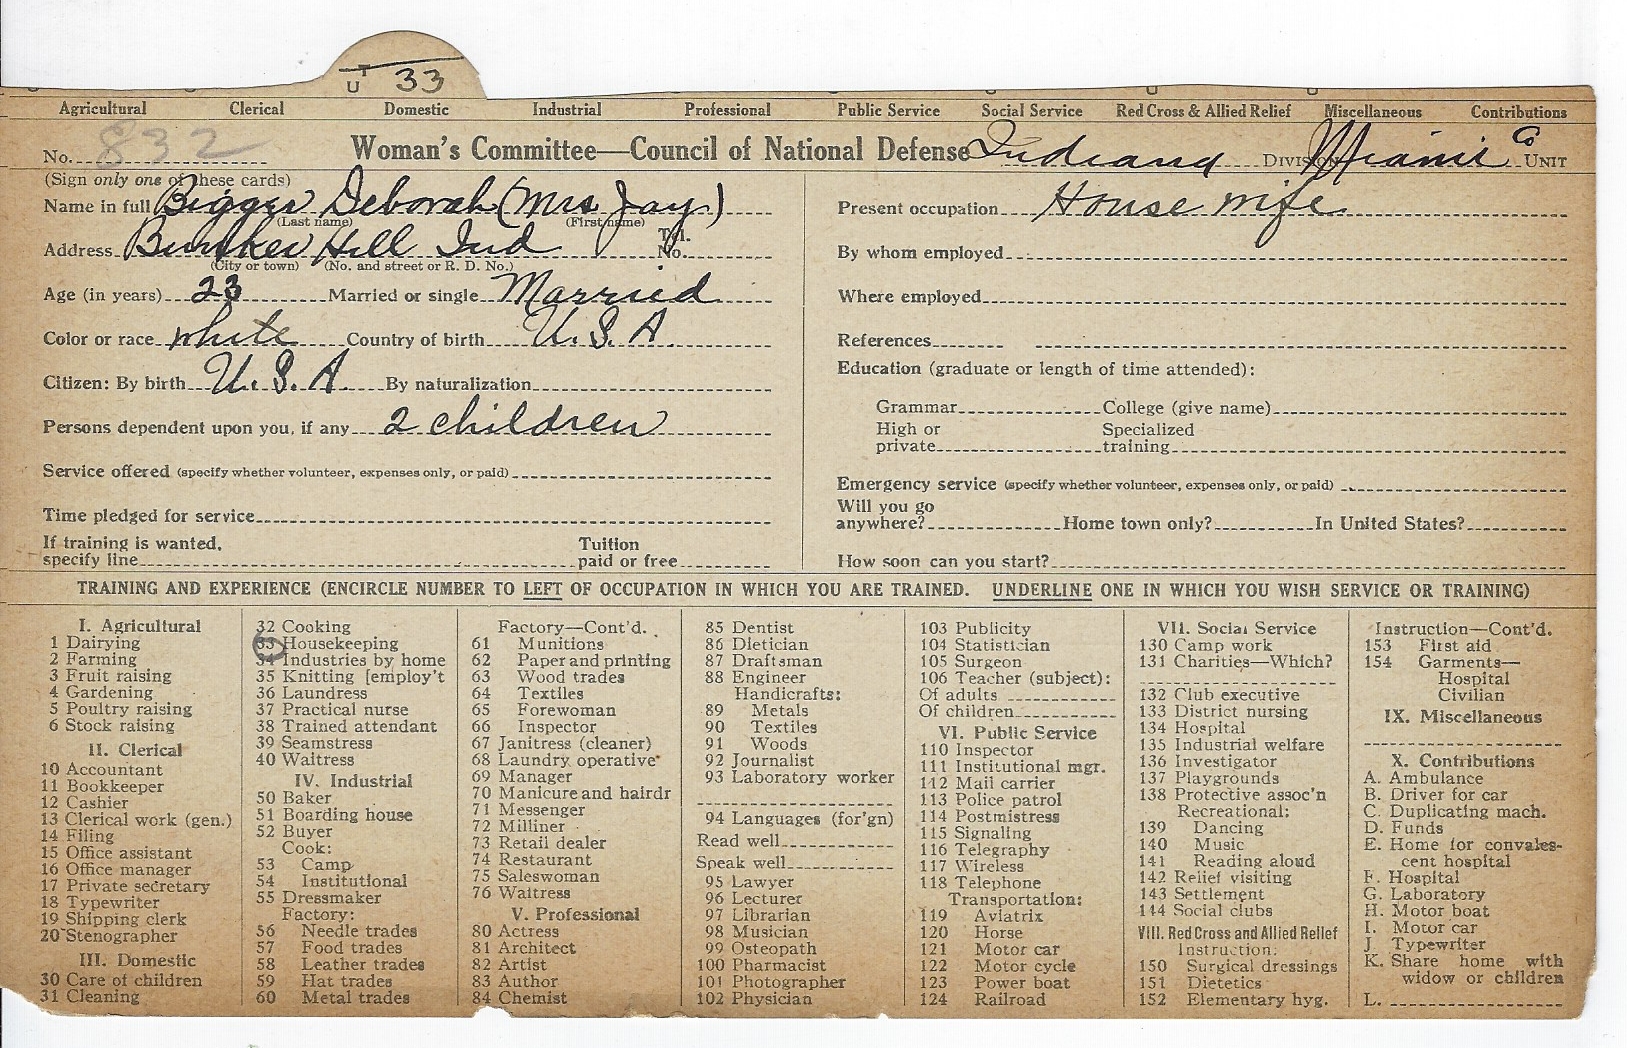 U T 33
Agricultural Clerical Domestic Industrial Professional Public Service Social Service Red Cross & Allied Relief Miscellaneous Contributions
No. 832 Woman's Committee—Council of National Defense Indiana DIVISION Miami Co UNIT
(Sign only one of these cards)
Name in full Bigger Deborah (Mrs Jay)
(Last name) (First name)
Address Bunker Hill Ind Tel. No.
(City or town) (No. and street or R. D. No.)
Age (in years) 23 Married or single Married
Color or race white Country of birth U.S.A.
Citizen: By birth U.S.A. By naturalization
Persons dependent upon you, if any 2 children
Service offered (specify whether volunteer, expenses only, or paid)
Time pledged for service
If training is wanted, specify line Tuition paid or free
Present occupation House wife
By whom employed
Where employed
References
Education (graduate or length of time attended):
Grammar College (give name)
High or private Specialized training
Emergency service (specify whether volunteer, expenses only, or paid)
Will you go anywhere? Home town only? In United States?
How soon can you start?
TRAINING AND EXPERIENCE (ENCIRCLE NUMBER TO LEFT OF OCCUPATION IN WHICH YOU ARE TRAINED. UNDERLINE ONE IN WHICH YOU WISH SERVICE OR TRAINING)
I. Agricultural
1 Dairying
2 Farming
3 Fruit raising
4 Gardening
5 Poultry raising
6 Stock raising
II. Clerical
10 Accountant
11 Bookkeeper
12 Cashier
13 Clerical work (gen.)
14 Filing
15 Office assistant
16 Office manager
17 Private secretary
18 Typewriter
19 Shipping clerk
20 Stenographer
III. Domestic
30 Care of children
31 Cleaning
32 Cooking
33 Housekeeping
34 Industries by home
35 Knitting [employ't
36 Laundress
37 Practical nurse
38 Trained attendant
39 Seamstress
40 Waitress
IV. Industrial
50 Baker
51 Boarding house
52 Buyer
Cook:
53 Camp
54 Institutional
55 Dressmaker
Factory:
56 Needle trades
57 Food trades
58 Leather trades
59 Hat trades
60 Metal trades
Factory—Cont'd.
61 Munitions
62 Paper and printing
63 Wood trades
64 Textiles
65 Forewoman
66 Inspector
67 Janitress (cleaner)
68 Laundry operative
69 Manager
70 Manicure and hairdr
71 Messenger
72 Milliner
73 Retail dealer
74 Restaurant
75 Saleswoman
76 Waitress
V. Professional
80 Actress
81 Architect
82 Artist
83 Author
84 Chemist
85 Dentist
86 Dietician
87 Draftsman
88 Engineer
Handicrafts:
89 Metals
90 Textiles
91 Woods
92 Journalist
93 Laboratory worker
94 Languages (for'gn)
Read well
Speak well
95 Lawyer
96 Lecturer
97 Librarian
98 Musician
99 Osteopath
100 Pharmacist
101 Photographer
102 Physician
103 Publicity
104 Statistician
105 Surgeon
106 Teacher (subject):
Of adults
Of children
VI. Public Service
110 Inspector
111 Institutional mgr.
112 Mail carrier
113 Police patrol
114 Postmistress
115 Signaling
116 Telegraphy
117 Wireless
118 Telephone
Transportation:
119 Aviatrix
120 Horse
121 Motor car
122 Motor cycle
123 Power boat
124 Railroad
VII. Social Service
130 Camp work
131 Charities—Which?
132 Club executive
133 District nursing
134 Hospital
135 Industrial welfare
136 Investigator
137 Playgrounds
138 Protective assoc'n
Recreational:
139 Dancing
140 Music
141 Reading aloud
142 Relief visiting
143 Settlement
144 Social clubs
VIII. Red Cross and Allied Relief
Instruction:
150 Surgical dressings
151 Dietetics
152 Elementary hyg.
Instruction—Cont'd.
153 First aid
154 Garments—
Hospital
Civilian
IX. Miscellaneous
X. Contributions
A. Ambulance
B. Driver for car
C. Duplicating mach.
D. Funds
E. Home for convales-
cent hospital
F. Hospital
G. Laboratory
H. Motor boat
I. Motor car
J. Typewriter
K. Share home with
widow or children
L.